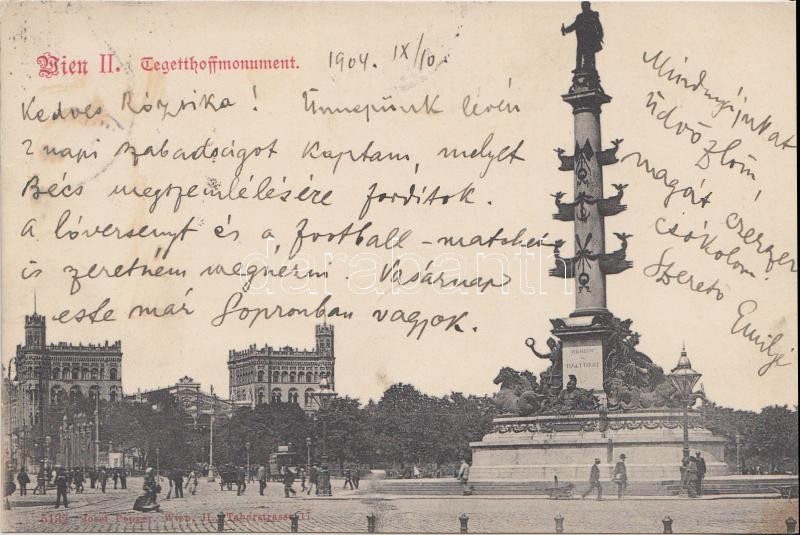 Wien II. Tegetthoffmonument.
1904. IX/10.
Kedves Rózsika! Ünnepünk lévén
2 napi szabadságot kaptam, melyet
Bécs megszemlélésére fordítok.
A lóversenyt és a football-matchet
is szeretném megnézni. Vasárnap
este már Sopronban vagyok.
Mindnyájukat
üdvözlöm,
magát ezerszer
csókolom
Szerető Emilje
darabanth
5132 Josef Popper, Wien, II. Taborstrasse 17